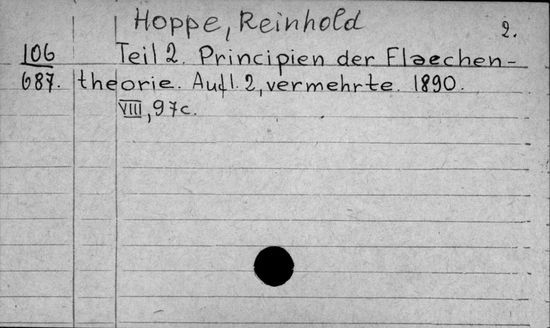 Hoppe, Reinhold
2.
106 Teil 2. Principien der Flaechen-
687. theorie. Aufl. 2, vermehrte. 1890.
VIII, 97c.